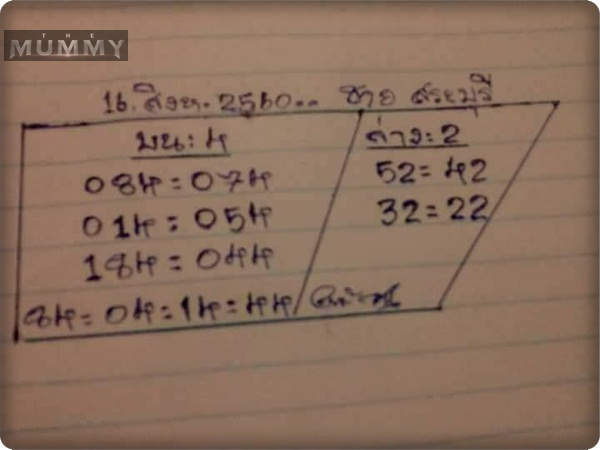 THE
MUMMY
16. สิงหา. 2560.. ชาย สระบุรี
บน: 4
084 = 074
014 = 054
184 = 044
84 = 04 = 14 = 44
ล่าง: 2
52 = 42
32 = 22